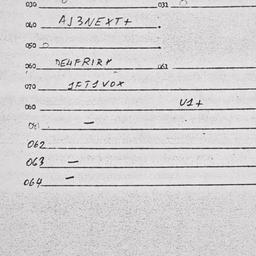 030 031
040 AJ3NEXT+
050
060 DE4FRIRK 061
070 1FT1VOX
080 U1+
091 —
062
063 —
064 —